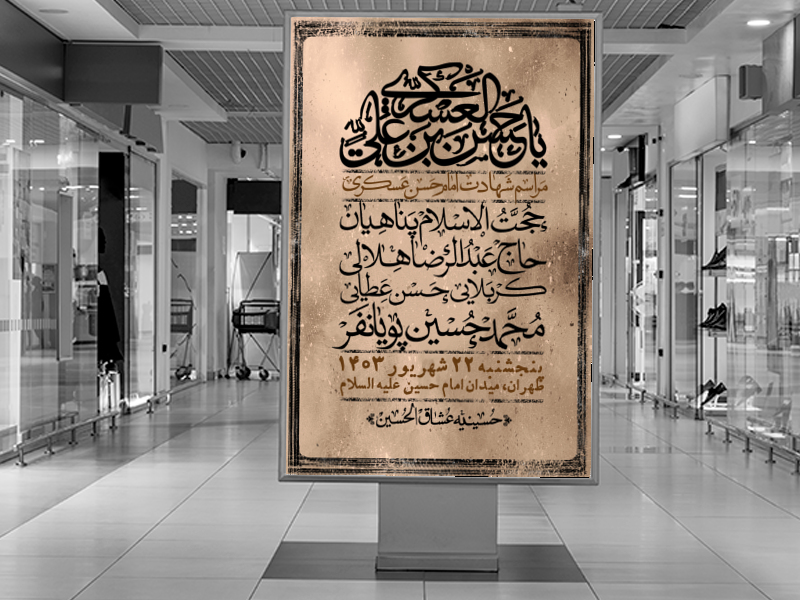 یا حسن بن علی العسکری
مراسم شهادت امام حسن عسکری
حجت الاسلام پناهیان
حاج عبدالرضا هلالی
کربلایی حسن عطایی
محمدحسین پویانفر
پنجشنبه ۲۲ شهریور ۱۴۰۳
طهران، میدان امام حسین علیه السلام
حسینیه عشاق الحسین